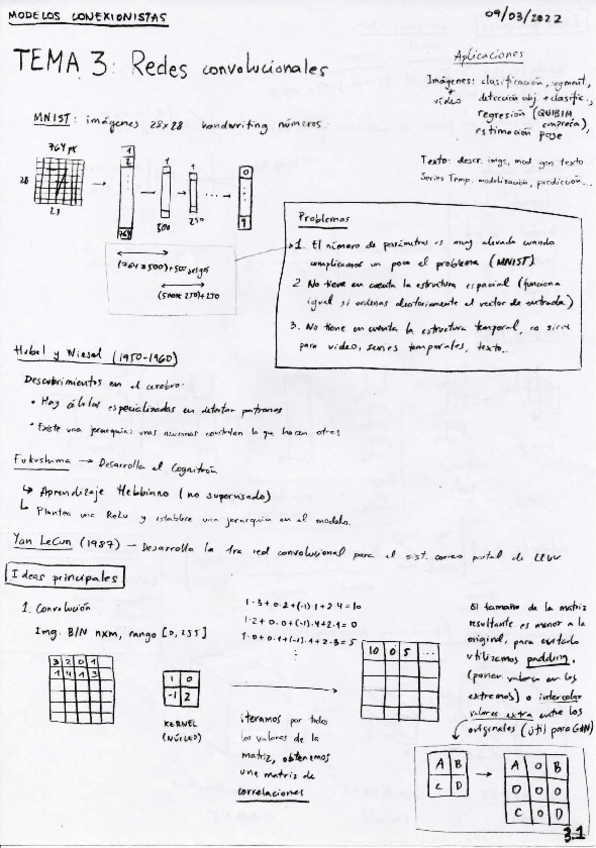 MODELOS CONEXIONISTAS
09/03/2022
TEMA 3: Redes convolucionales
Aplicaciones
Imágenes: clasificación, segment,
+
video
detección obj + clasific.,
regresión (QUIBIM
empresa),
estimación pose
Texto: descr. imgs, mod gen texto
Series Temp. modelización, predicción...
MNIST: imágenes 28x28 handwriting números.
764 px
28
23
1
2
1
1
0
500
250
9
(764x500)+500 sesgos
(500x250)+250
Problemas
1. El número de parámetros es muy elevado cuando
complicamos un poco el problema (MNIST)
2. No tiene en cuenta la estructura espacial (funciona
igual si ordenas aleatoriamente el vector de entrada)
3. No tiene en cuenta la estructura temporal, no sirve
para video, series temporales, texto...
Hubel y Wiesel (1950-1960)
Descubrimientos en el cerebro:
• Hay células especializadas en detectar patrones
• Existe una jerarquía: unas neuronas controlan lo que hacen otras
Fukushima → Desarrolla el Cognitrón
↳ Aprendizaje Hebbiano (no supervisado)
↳ Plantea una ReLu y establece una jerarquía en el modelo.
Yan LeCun (1987) – Desarrolla la 1ra red convolucional para el sist. correo postal de EEUU
Ideas principales
1. Convolución
Img. B/N nxm, rango [0,255]
1·3+0·2+(-1)·1+2·4=10
1·2+0·0+(-1)·4+2·1=0
1·0+0·1+(-1)·1+2·3=5
3 2 0 1
1 4 1 3
1 0
-1 2
KERNEL
(NÚCLEO)
iteramos por todos
los valores de la
matriz, obtenemos
una matriz de
correlaciones
10 0 5 ...
El tamaño de la matriz
resultante es menor a la
original, para evitarlo
utilizamos padding,
(poner valores en los
extremos) o intercalar
valores extra entre los
originales (útil para GAN)
A B
C D
A 0 B
0 0 0
C 0 D
3.1